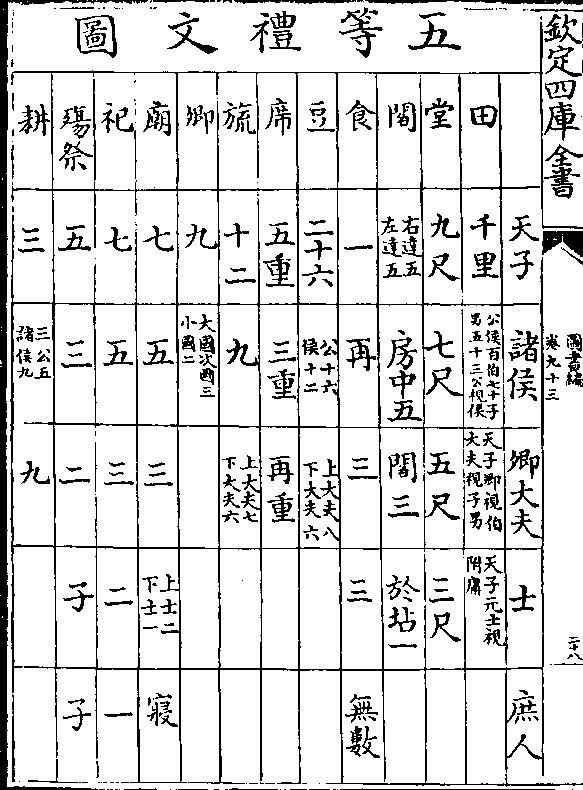 欽定四庫全書
圖書編
卷九十三
二十八
五等禮文圖
天子
諸侯
卿大夫
士
庶人
田
千里
公侯百伯七十子
男五十三公視侯
天子卿視伯
大夫視子男
天子元士視
附庸
堂
九尺
七尺
五尺
三尺
閣
右達五
左達五
房中五
閣三
於坫一
食
一
再
三
三
無數
豆
二十六
公十六
侯十二
上大夫八
下大夫六
席
五重
三重
再重
旒
十二
九
上大夫七
下大夫六
卿
九
大國次國三
小國二
廟
七
五
三
上士二
下士一
寢
祀
七
五
三
二
一
殤祭
五
三
二
子
子
耕
三
三公五
諸侯九
九